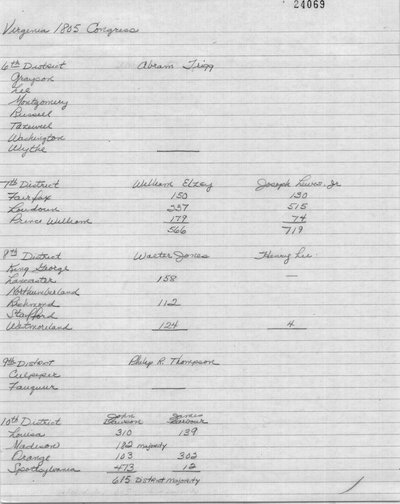 24069
Virginia 1805 Congress
6th District Abram Trigg
Grayson
Lee
Montgomery
Russell
Tazewell
Washington
Wythe
7th District William Elzey Joseph Lewis, Jr
Fairfax 150 130
Loudoun 237 515
Prince William 179 74
566 719
8th District Walter Jones Henry Lee
King George
Lancaster 158 —
Northumberland
Richmond 112
Stafford
Westmoreland 124 4
9th District Philip R. Thompson
Culpeper
Fauquier
10th District John Dawson James Barbour
Louisa 310 139
Madison 182 majority
Orange 103 302
Spotsylvania 473 12
615 District majority